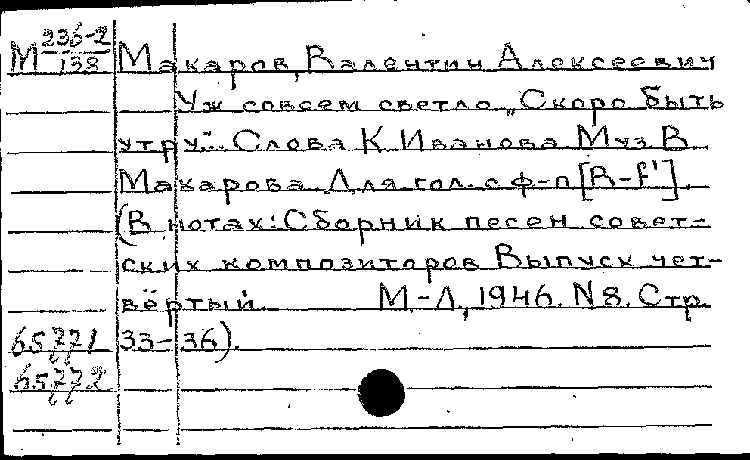 М 236-2/138 Макаров, Валентин Алексеевич
Уж совсем светло „Скоро быть
утру". Слова К Иванова Муз В
Макарова. Для гол. с ф-п [В-f'].
(В нотах: Сборник песен совет-
ских композиторов Выпуск чет-
вёртый. М-Л, 1946. N 8. Стр.
65771 33-36).
65772